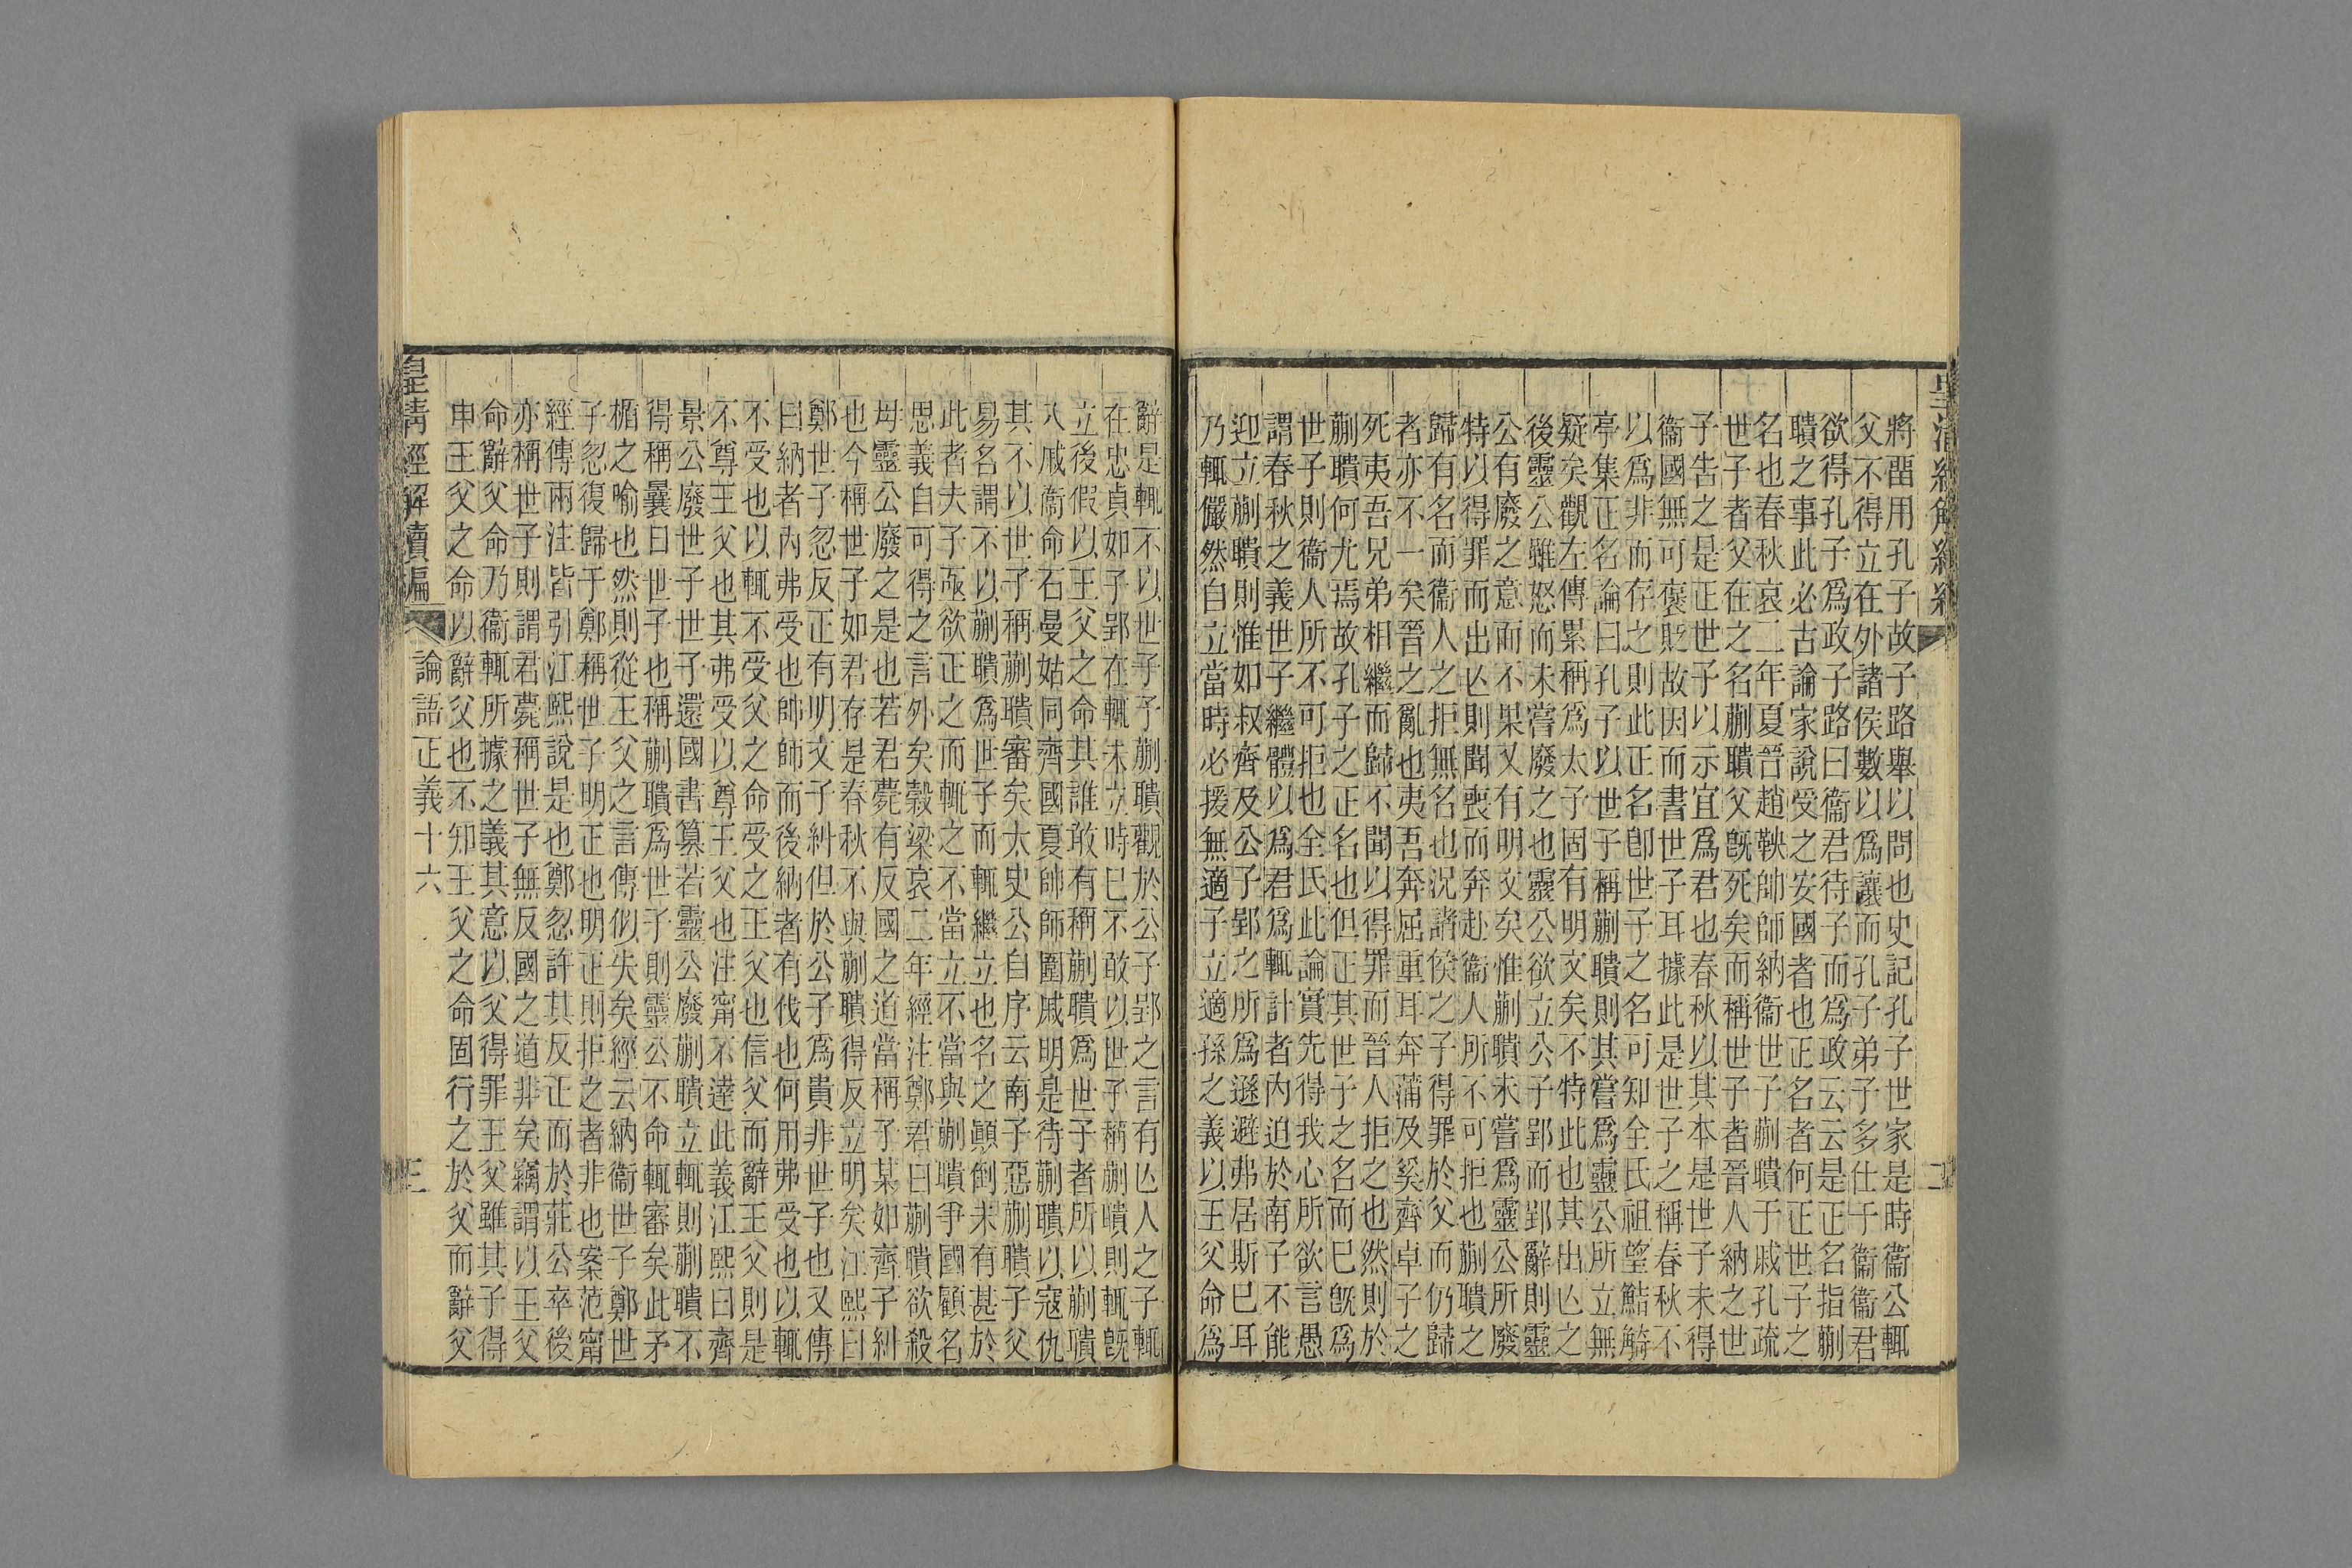 皇清經解續編
二
將畱用孔子故子路舉以問也史記孔子世家是時衞公輒
父不得立在外諸侯數以爲讓而孔子弟子多仕于衞衞君
欲得孔子爲政子路曰衞君待子而爲政云云是正名指蒯
聵之事此必古論家說受之安國者也正名者何正世子之
名也春秋哀二年夏晉趙鞅帥師納衞世子蒯聵于戚孔疏
世子者父在之名蒯聵父旣死矣而稱世子者晉人納之世
子告之是正世子以示宜爲君也春秋以其本是世子未得
衞國無可襃貶故因而書世子耳據此是世子之稱春秋不
以爲非而存之則此正名卽世子之名可知全氏祖望鮚觭
亭集正名論曰孔子以世子稱蒯聵則其嘗爲靈公所立無
疑矣觀左傳累稱爲太子固有明文矣不特此也其出亾之
後靈公雖怒而未嘗廢之也靈公欲立公子郢而郢辭則靈
公有廢之意而不果又有明文矣惟蒯聵未嘗爲靈公所廢
特以得罪而出亾則聞喪而奔赴衞人所不可拒也蒯聵之
歸有名而衞人之拒無名也況諸侯之子得罪於父而仍歸
者亦不一矣晉之亂也夷吾奔屈重耳奔蒲及奚齊卓子之
死夷吾兄弟相繼而歸不聞以得罪而晉人拒之也然則於
蒯聵何尤焉故孔子之正名也但正其世子之名而已旣爲
世子則衞人所不可拒也全氏此論實先得我心所欲言愚
謂春秋之義世子繼體以爲君爲輒計者內迫於南子不能
迎立蒯聵則惟如叔齊及公子郢之所爲遜避弗居斯已耳
乃輒儼然自立當時必援無適子立適孫之義以王父命爲
辭是輒不以世子予蒯聵觀於公子郢之言有亾人之子輒
在忠貞如子郢在輒未立時已不敢以世子稱蒯聵則輒旣
立後假以王父之命其誰敢有稱蒯聵爲世子者所以蒯聵
入戚衞命石曼姑同齊國夏帥師圍戚明是待蒯聵以寇仇
其不以世子稱蒯聵審矣太史公自序云南子惡蒯聵子父
易名謂不以蒯聵爲世子而輒繼立也名之顚倒未有甚於
此者夫子亟欲正之而輒之不當立不當與蒯聵爭國顧名
思義自可得之言外矣榖梁哀二年經注鄭君曰蒯聵欲殺
母靈公廢之是也若君薨有反國之道當稱子某如齊子糾
也今稱世子如君存是春秋不與蒯聵得反立明矣江熙曰
鄭世子忽反正有明文子糾但於公子爲貴非世子也又傳
曰納者內弗受也帥師而後納者有伐也何用弗受也以輒
不受也以輒不受父之命受之王父也信父而辭王父則是
不尊王父也其弗受以尊王父也注甯不達此義江熙曰齊
景公廢世子世子還國書篡若靈公廢蒯聵立輒則蒯聵不
得稱曩日世子也稱蒯聵爲世子則靈公不命輒審矣此矛
楯之喻也然則從王父之言傳似失矣經云納衞世子鄭世
子忽復歸于鄭稱世子明正也明正則拒之者非也案范甯
經傳兩注皆引江熙說是也鄭忽許其反正而於莊公卒後
亦稱世子則謂君薨稱世子無反國之道非矣竊謂以王父
命辭父命乃衞輒所據之義其意以父得罪王父雖其子得
申王父之命以辭父也不知王父之命固行之於父而辭父
皇清經解續編
論語正義十六
三